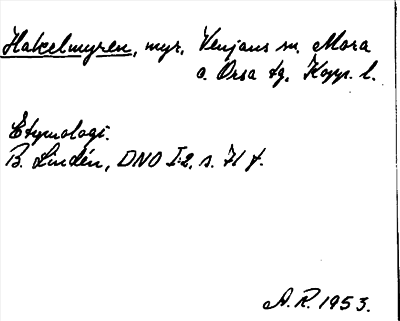 Hakelmyren, myr, Venjans sn, Mora
o. Orsa tg, Kopp. l.
Etymologi.
B. Lindén, DNO I:2, s. 71 f.
A.R. 1953.